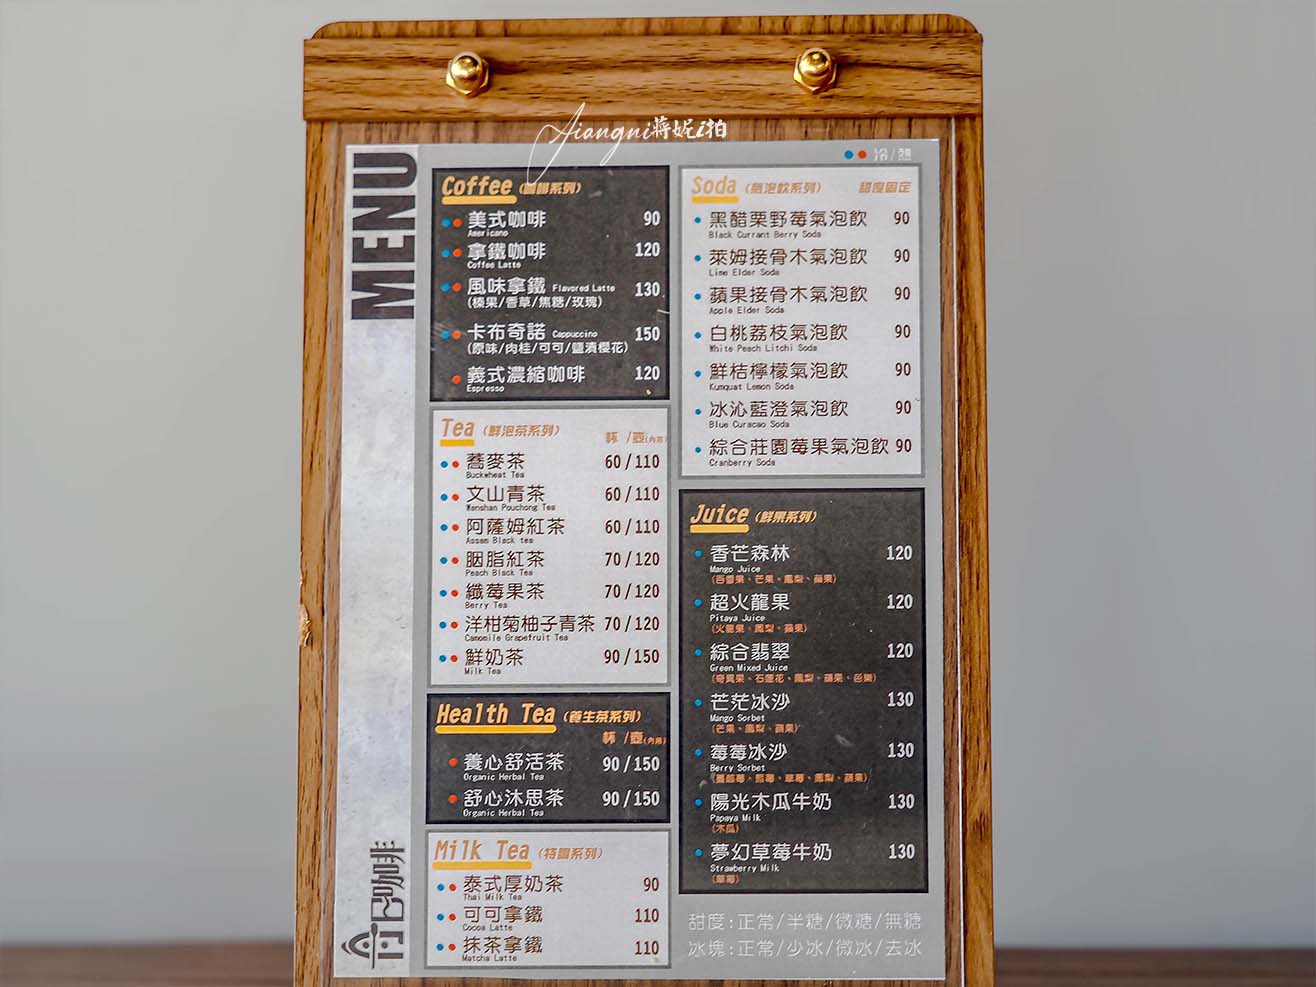 Jiangni蔣妮i拍
MENU
冷/熱
Coffee (咖啡系列)
美式咖啡 90
Americano
拿鐵咖啡 120
Coffee Latte
風味拿鐵 Flavored Latte 130
(榛果/香草/焦糖/玫瑰)
卡布奇諾 Cappuccino 150
(原味/肉桂/可可/鹽漬櫻花)
義式濃縮咖啡 120
Espresso
Tea (鮮泡茶系列)
杯 /壺(內用)
蕎麥茶 60/110
Buckwheat Tea
文山青茶 60/110
Wenshan Pouchong Tea
阿薩姆紅茶 60/110
Assam Black tea
胭脂紅茶 70/120
Peach Black Tea
纖莓果茶 70/120
Berry Tea
洋柑菊柚子青茶 70/120
Camomile Grapefruit Tea
鮮奶茶 90/150
Milk Tea
Health Tea (養生茶系列)
杯 /壺(內用)
養心舒活茶 90/150
Organic Herbal Tea
舒心沐思茶 90/150
Organic Herbal Tea
Milk Tea (特調系列)
泰式厚奶茶 90
Thai Milk Tea
可可拿鐵 110
Cocoa Latte
抹茶拿鐵 110
Matcha Latte
Soda (氣泡飲系列) 甜度固定
黑醋栗野莓氣泡飲 90
Black Currant Berry Soda
萊姆接骨木氣泡飲 90
Lime Elder Soda
蘋果接骨木氣泡飲 90
Apple Elder Soda
白桃荔枝氣泡飲 90
White Peach Litchi Soda
鮮桔檸檬氣泡飲 90
Kumquat Lemon Soda
冰沁藍澄氣泡飲 90
Blue Curacao Soda
綜合莊園莓果氣泡飲 90
Cranberry Soda
Juice (鮮果系列)
香芒森林 120
Mango Juice
(百香果、芒果、鳳梨、蘋果)
超火龍果 120
Pitaya Juice
(火龍果、鳳梨、蘋果)
綜合翡翠 120
Green Mixed Juice
(奇異果、石蓮花、鳳梨、蘋果、芭樂)
芒茫冰沙 130
Mango Sorbet
(芒果、鳳梨、蘋果)
莓莓冰沙 130
Berry Sorbet
(蔓越莓、藍莓、草莓、鳳梨、蘋果)
陽光木瓜牛奶 130
Papaya Milk
(木瓜)
夢幻草莓牛奶 130
Strawberry Milk
(草莓)
甜度:正常/半糖/微糖/無糖
冰塊:正常/少冰/微冰/去冰